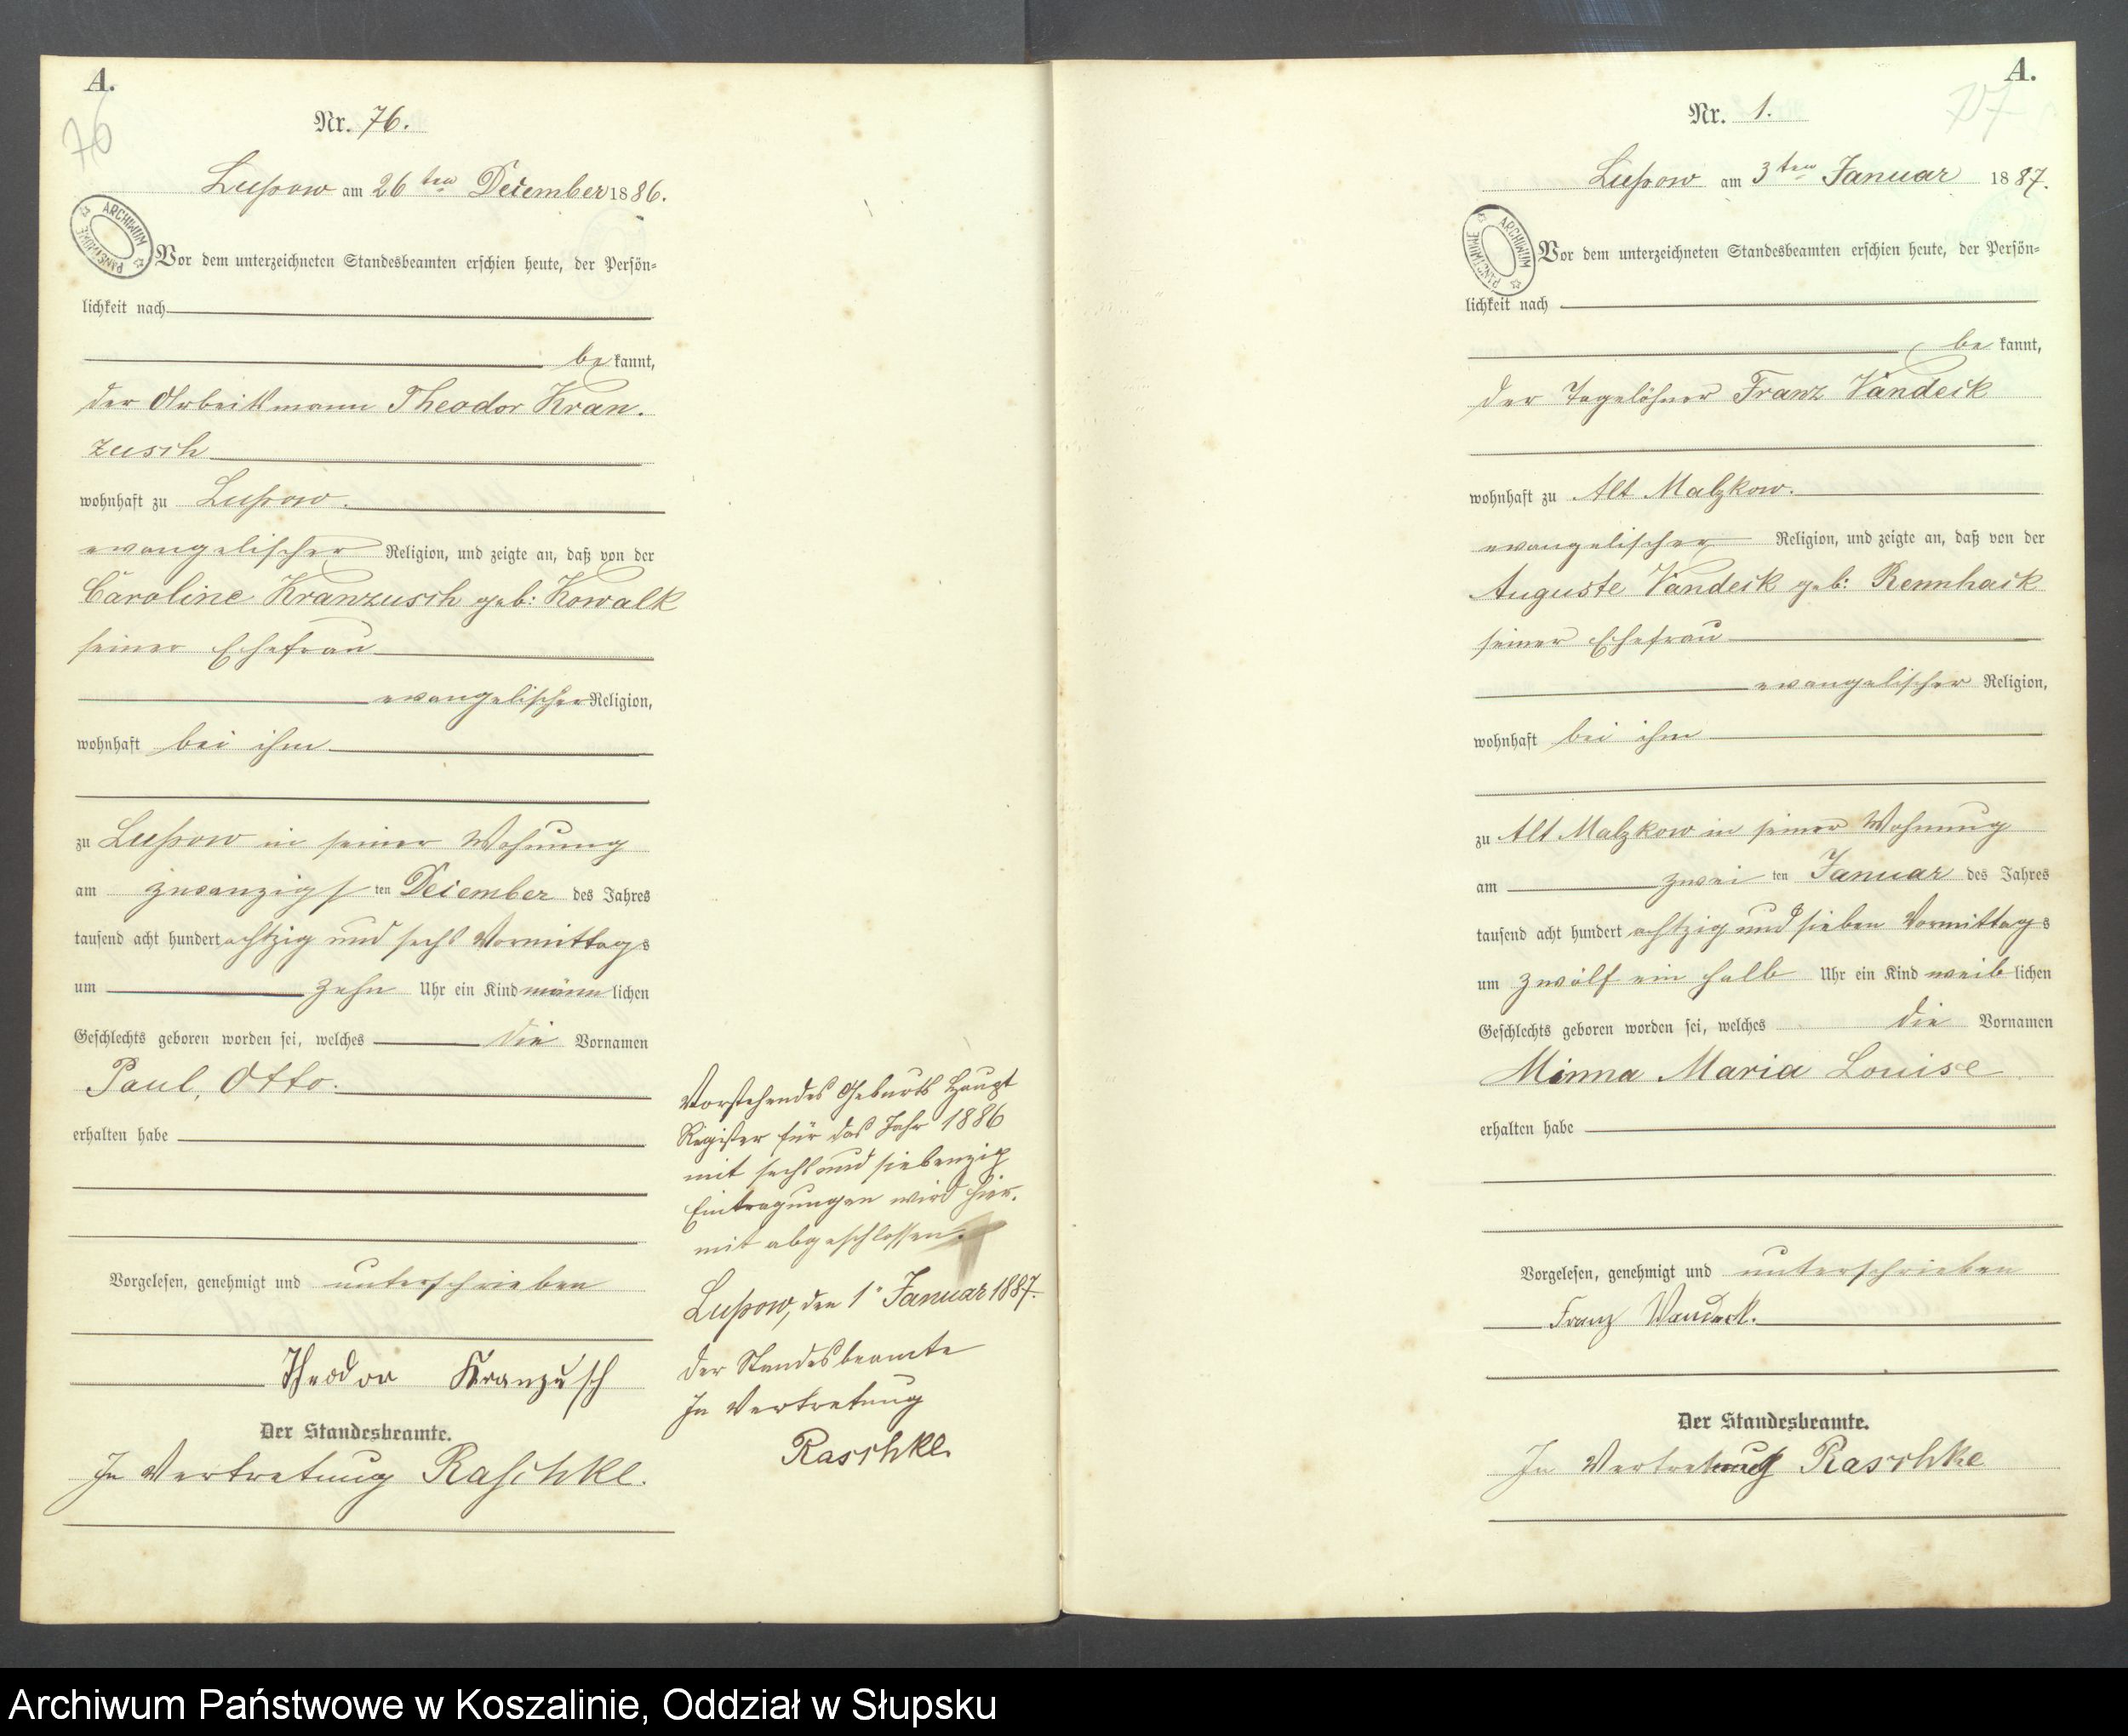 A.
76
Nr. 76.
Lupow am 26ten December 1886.
ARCHIWUM PAŃSTWOWE
Vor dem unterzeichneten Standesbeamten erschien heute, der Persön=
lichkeit nach
be kannt,
der Arbeitsmann Theodor Kran-
zusch
wohnhaft zu Lupow.
evangelischer Religion, und zeigte an, daß von der
Caroline Kranzusch geb: Kowalk
seiner Ehefrau
evangelischer Religion,
wohnhaft bei ihm
zu Lupow in seiner Wohnung
am zwanzigsten December des Jahres
tausend acht hundert achtzig und sechs Vormittags
um zehn Uhr ein Kind männlichen
Geschlechts geboren worden sei, welches die Vornamen
Paul, Otto.
erhalten habe
Vorgelesen, genehmigt und unterschrieben
Theodor Kranzusch
Der Standesbeamte.
In Vertretung Raschke.
Vorstehendes Geburts Haupt
Register für das Jahr 1886
mit sechs und siebenzig
Eintragungen wird hier-
mit abgeschlossen.
Lupow, den 1. Januar 1887.
Der Standesbeamte
In Vertretung
Raschke.
A.
77
Nr. 1.
Lupow am 3ten Januar 1887.
ARCHIWUM PAŃSTWOWE
Vor dem unterzeichneten Standesbeamten erschien heute, der Persön=
lichkeit nach
be kannt,
der Tagelöhner Franz Vandeck
wohnhaft zu Alt Malzkow.
evangelischer Religion, und zeigte an, daß von der
Auguste Vandeck geb: Rennhack
seiner Ehefrau
evangelischer Religion,
wohnhaft bei ihm
zu Alt Malzkow in seiner Wohnung
am zwei ten Januar des Jahres
tausend acht hundert achtzig und sieben Vormittags
um zwölf ein halb Uhr ein Kind weiblichen
Geschlechts geboren worden sei, welches die Vornamen
Minna Maria Louise
erhalten habe
Vorgelesen, genehmigt und unterschrieben
Franz Wandeck.
Der Standesbeamte.
In Vertretung Raschke
Archiwum Państwowe w Koszalinie, Oddział w Słupsku